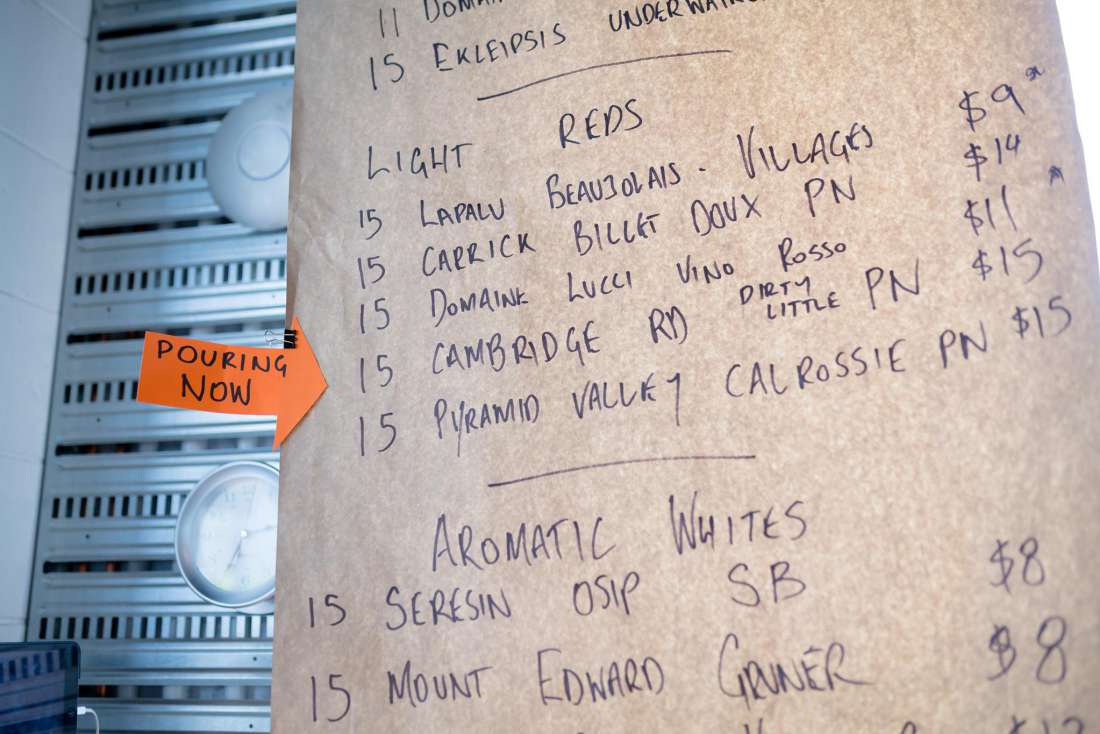 11 DOMAIN
15 EKLEIPSIS
LIGHT REDS
15 LAPALU BEAUJOLAIS - VILLAGES $9
15 CARRICK BILLET DOUX PN $14
15 DOMAINE LUCCI VINO ROSSO $11
15 CAMBRIDGE RD DIRTY LITTLE PN $15
15 PYRAMID VALLEY CALROSSIE PN $15
POURING
NOW
AROMATIC WHITES
15 SERESIN OSIP SB $8
15 MOUNT EDWARD GRUNER $8